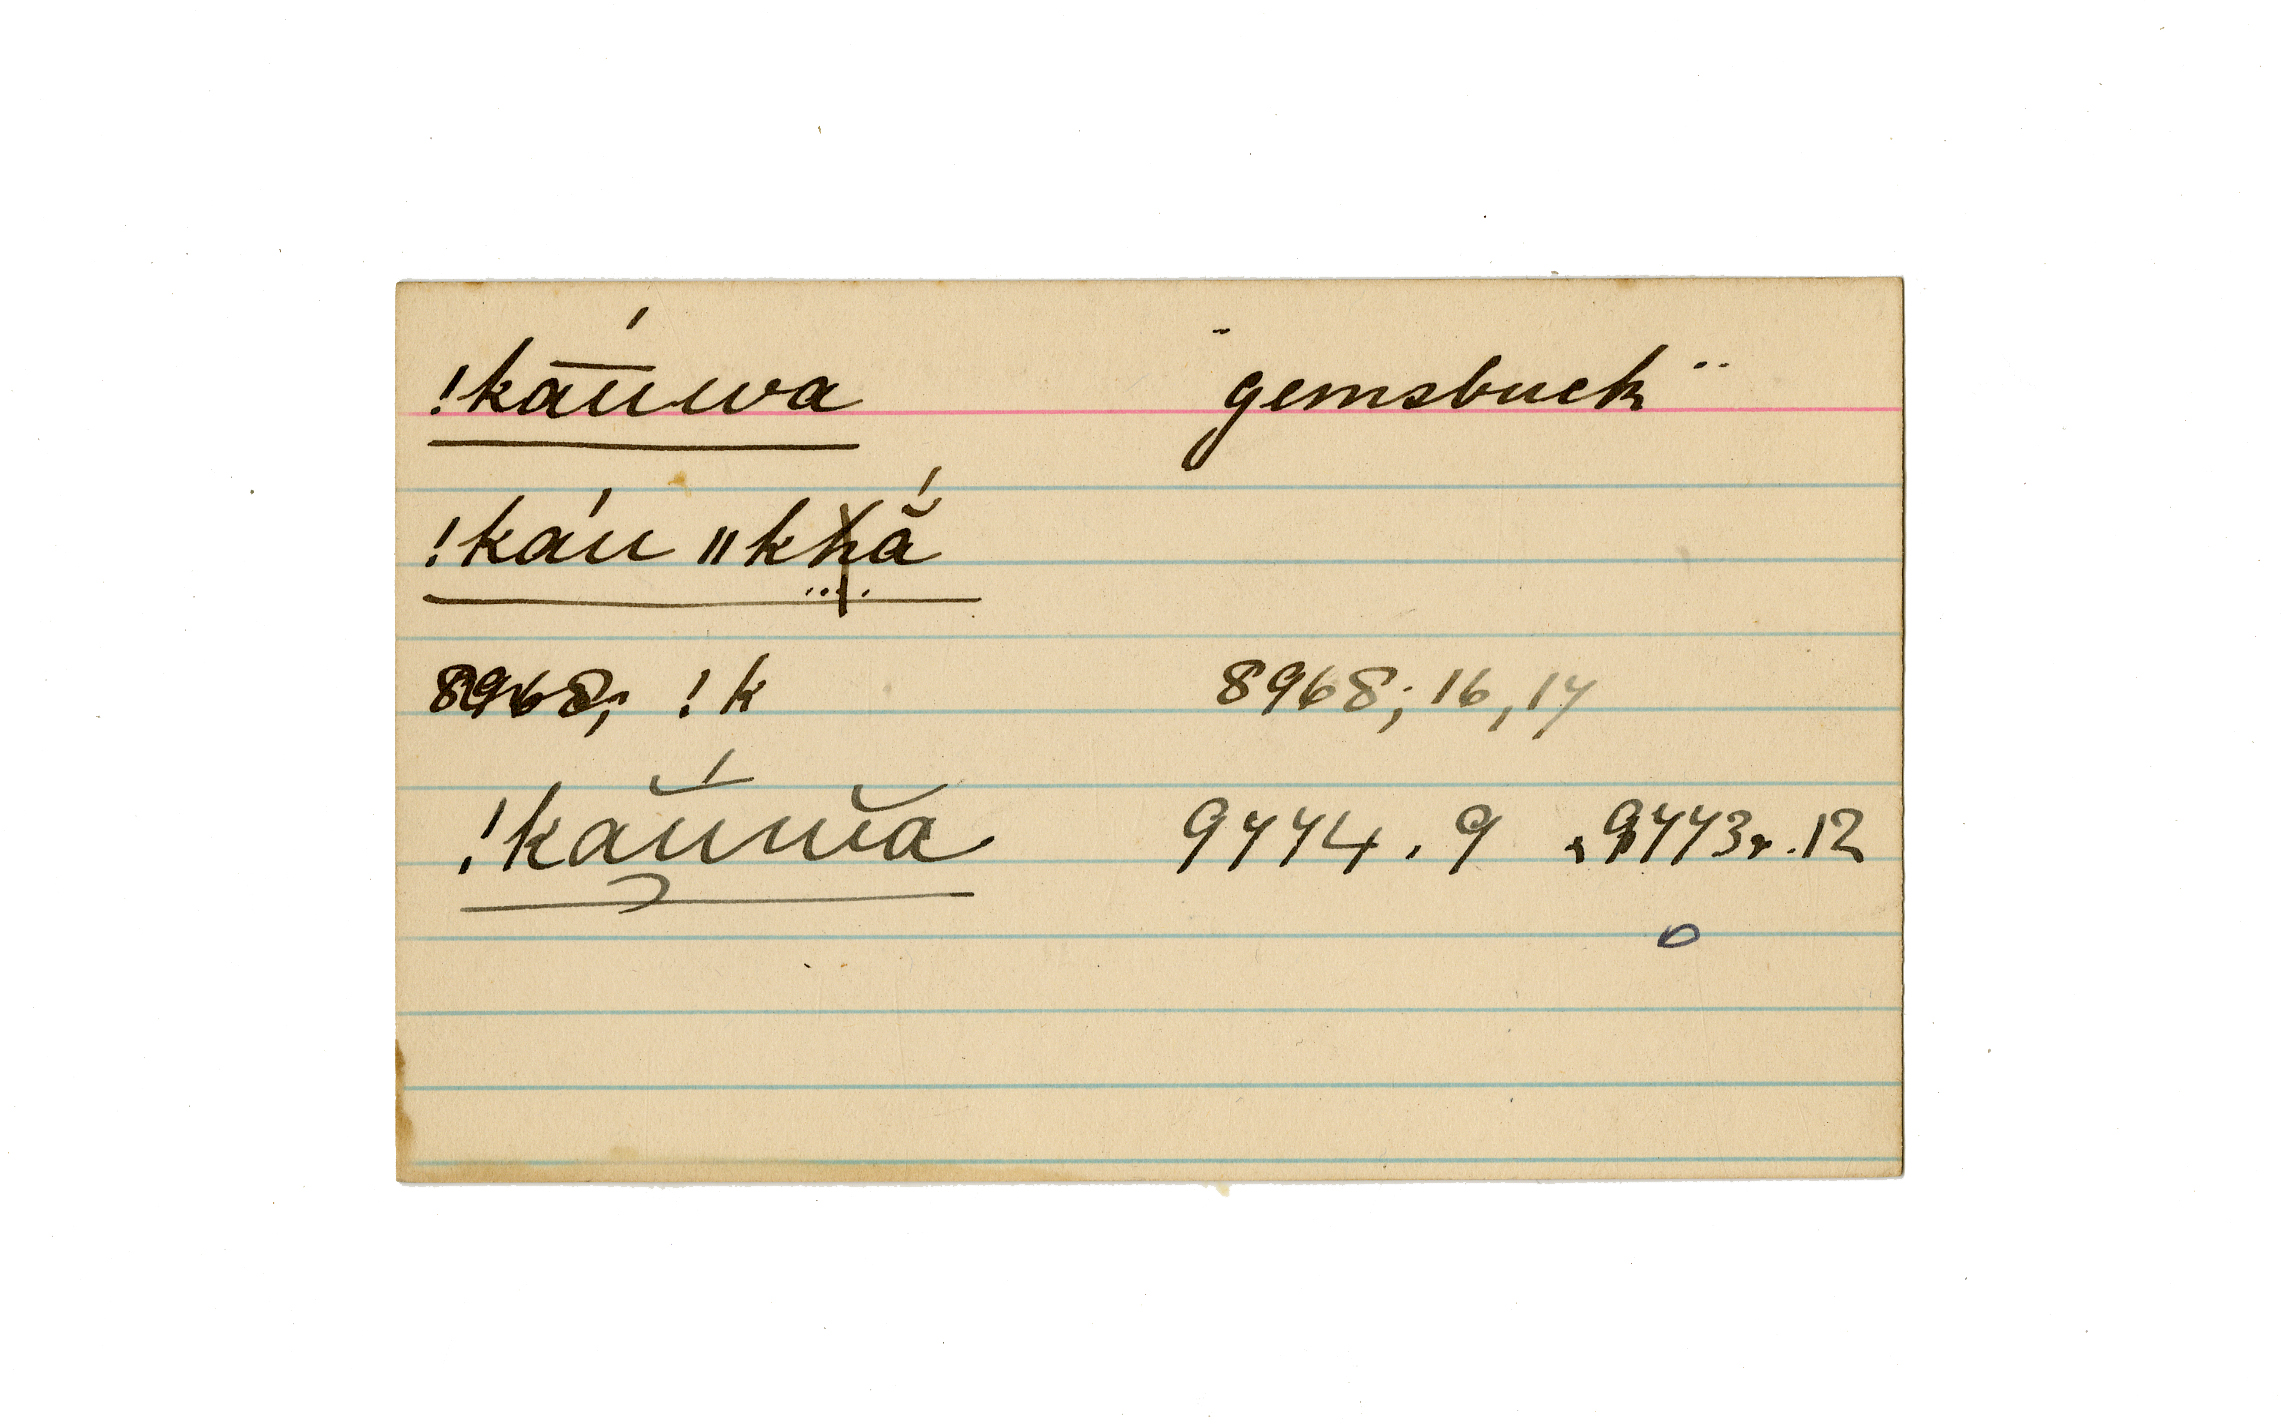 !kā́ūwa "gemsbuck"
!káu ǁkhẵ́
8968; !k 8968; 16, 17
!kaŭ́wa 9774. 9 9773r. 12